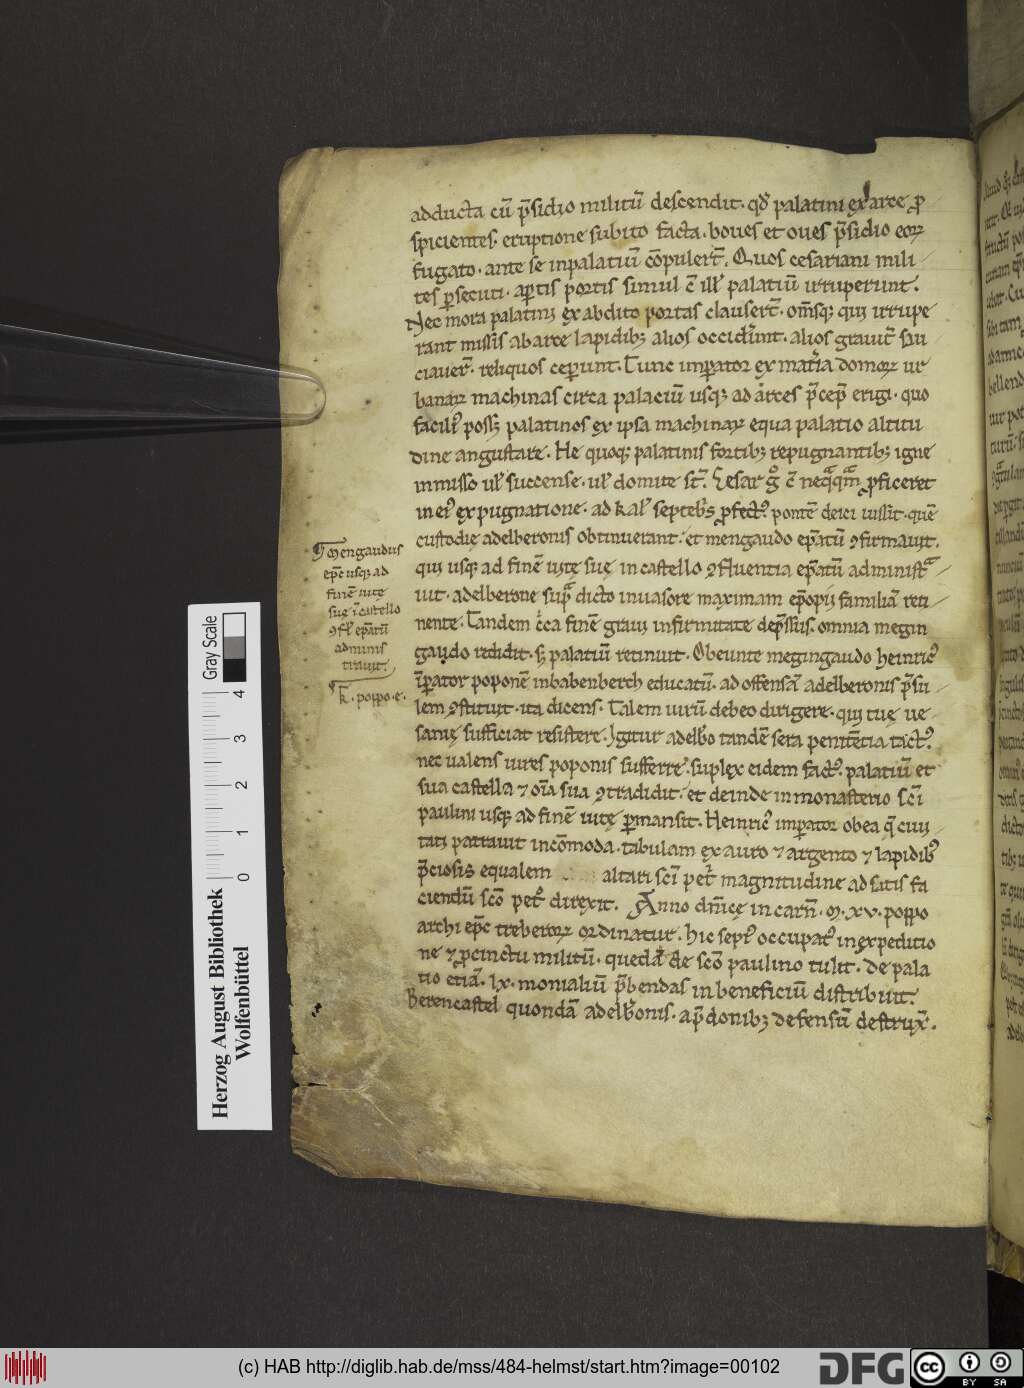 adducta cū p̄sidio militū descendit. qd̄ palatini ex arce p̱ro
spicientes. eruptione subito facta. boues et oues p̄sidio eoꝝ
fugato. ante se in palatiū cōpulert̄. Quos cesariani mili
tes ꝑsecuti. aꝑtis portis simul cū ill̄ palatiū irruperunt.
Nec mora palatini ex abdito portas clausert̄. om̄sq; qui irrupe
rant missis ab arce lapidib; alios occidert̄. alios grauit̄ sau
ciauer̄. reliquos ceperunt. Tunc imꝑator ex materia domoꝝ ur
banaꝝ machinas circa palaciū usq; ad arces p̄cep̄ erigi. quo
facili' poss; palatinos ex ipsa machinaꝝ equa palatio altitu
dine angustare. He quoq; palatinis fortib; repugnantib; igne
inmisso ul' succense. ul' domite st̄. Cesar g° cū neq̄q̄m ꝓficeret
in ei' expugnatione. ad kal' septēbs ꝓfect' pontē deici iussit. quē
custodie adelberonis obtinuerant. et mengaudo ep̄atū ꝯfirmauit.
qui usq; ad finē uitę suę in castello ꝯfluentia ep̄atū administra
uit. adelberone sup̄ dicto inuasore maximam ep̄opii familiā reti
nente. Tandem circa finē graui infirmitate dep̄ssus. omnia megin
gaudo reddidit. s; palatiū retinuit. Obeunte megingaudo heinric'
īꝑator poponē in babenberch educatū. ad offensā adelberonis p̄su
lem ꝯstituit. ita dicens. Talem uirū debeo dirigere. qui tuę ue
sanię sufficiat resistere. Igitur adelbō tandē sera penitētia tact'.
nec ualens uires poponis sufferre. suplex eidem fact'. palatiū et
sua castella ⁊ oīa sua ꝯtradidit. et deinde in monasterio sc̄i
paulini usq; ad finē uitę ꝑmansit. Heinric' imꝑator ob ea q̄ ciui
tati patrauit incōmoda. tabulam ex auro ⁊ argento ⁊ lapidib'
p̄ciosis equalem altari sc̄i petri magnitudine ad satisfa
ciendū sc̄o petro direxit. Anno dn̄icę incarn̄. M. XV. poppo
archiep̄c treberoꝝ ordinatur. hic sepe occupat' in expeditio
ne ⁊ ꝓcinctu militū. quedā de sc̄o paulino tulit. de pala
tio etiā. lx. monialiū p̄bendas in beneficiū distribuit.
Berencastel quondā adelb̄onis. a p̄donib; defensū destrux̄.
Mengaudus
ep̄c usq; ad
finē uitę
suę ī castello
ꝯfl' ep̄atū
adminis
trauit
Gray Scale
0 1 2 3 4
Herzog August Bibliothek
Wolfenbüttel
(c) HAB http://diglib.hab.de/mss/484-helmst/start.htm?image=00102
DFG
cc BY SA